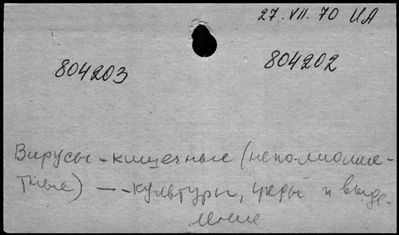 27. VII. 70 UA
804203 804202
Вирусы - кишечные (неполиомие-
тные) — - культуры, среды и выде-
ление